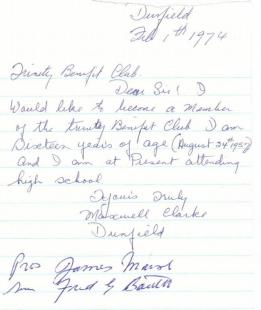 Dunfield
Feb 1th 1974
Trinity Benefit Club.
Dear Sir! I
Would like to become a Member
of the trinity Benifet Club I am
Sixteen years of age (August 24th 1957)
and I am at Present attending
high school
Yours Truly
Maxwell Clarke
Dunfield
Pros James
Fred G